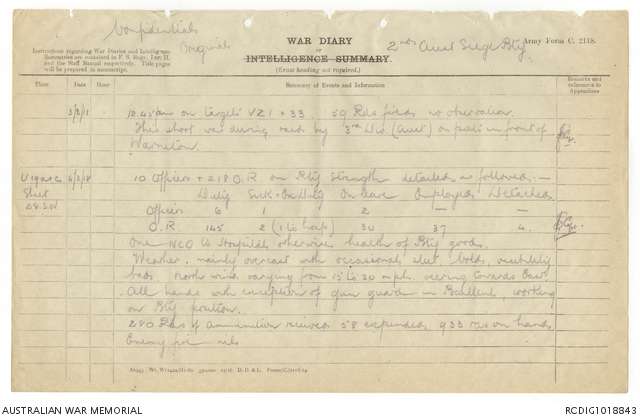 Confidential
Original
WAR DIARY
or
INTELLIGENCE SUMMARY.
(Erase heading not required.)
2nd Aust Siege Bty
Army Form C. 2118.
Instructions regarding War Diaries and Intelligence
Summaries are contained in F. S. Regs., Part II.
and the Staff Manual respectively. Title pages
will be prepared in manuscript.
Place Date Hour Summary of Events and Information Remarks and references to Appendices
3/3/18 12.45am on targets VZ1 + 33. 59 Rds fired no observation.
This shoot was during raid by 3rd Div (Aust) on posts in front of
Warneton.
Sheet
28 S.W.
10 Officers + 218 O.R. on Bty Strength detailed as followed :-
Duty Sick + On Duty On leave Employed Detached
Officers 6 1 2 — —
O.R. 145 2 (1 to hosp) 30 37 4.
One NCO to Hospital otherwise health of Bty good.
Weather, mainly overcast with occasional sleet, cold, visibility
bad. North wind varying from 15 to 20 m.p.h. veering towards East.
All hands with exception of gun guard in Billets, working
on Bty position.
240 Rds of ammunition received 58 expended 933 rds on hand.
Enemy fire nil
AUSTRALIAN WAR MEMORIAL
RCDIG1018843